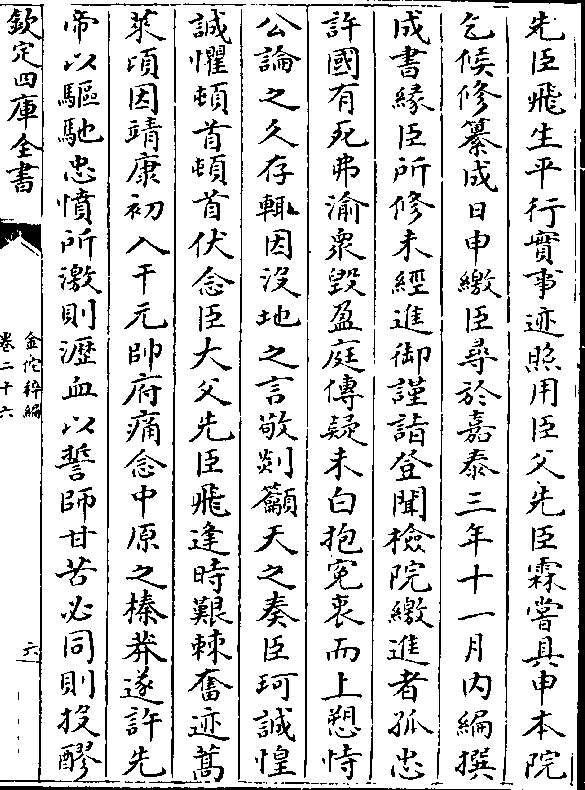 先臣飛生平行實事迹照用臣父先臣霖嘗具申本院
乞候修纂成日申繳臣尋於嘉泰三年十一月内編撰
成書緣臣所修未經進御謹詣登聞檢院繳進者孤忠
許國有死弗渝衆毁盈庭傳疑未白抱寃衷而上愬恃
公論之久存輙因沒地之言敬剡籲天之奏臣珂誠惶
誠懼頓首頓首伏念臣大父先臣飛逢時艱棘奮迹蒿
萊頃因靖康初入干元帥府痛念中原之榛莽遂許先
帝以驅馳忠憤所激則瀝血以誓師甘苦必同則投醪
欽定四庫全書
金佗稡編
卷二十六
六